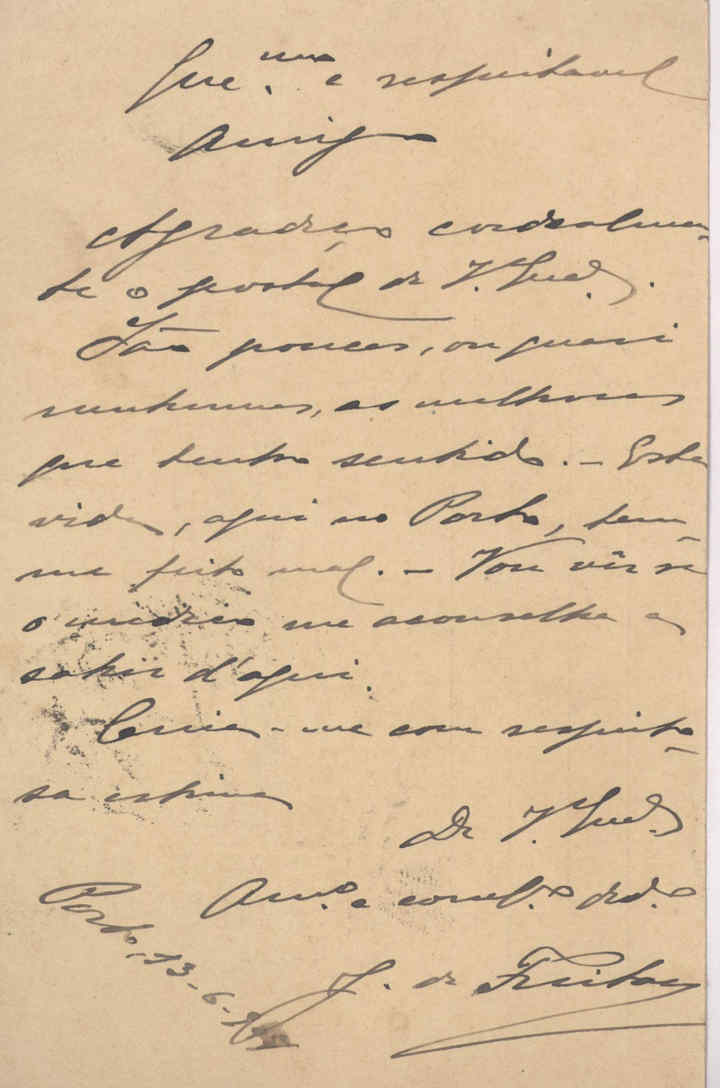 e respeitavel
Amigo
Agradeço cordealmen-
te o postal de V. Ex.
São poucas, ou quasi
nenhumas, as melhoras
que tenho sentido. — Esta
vida, aqui no Porto, tem-
me feito mal. — Vou vêr se
o medico me aconselha a
sahir d'aqui.
Creia-me com respeito-
sa estima
De V. Ex.
Am.º e
Porto, 13-6-
J. de Freitas